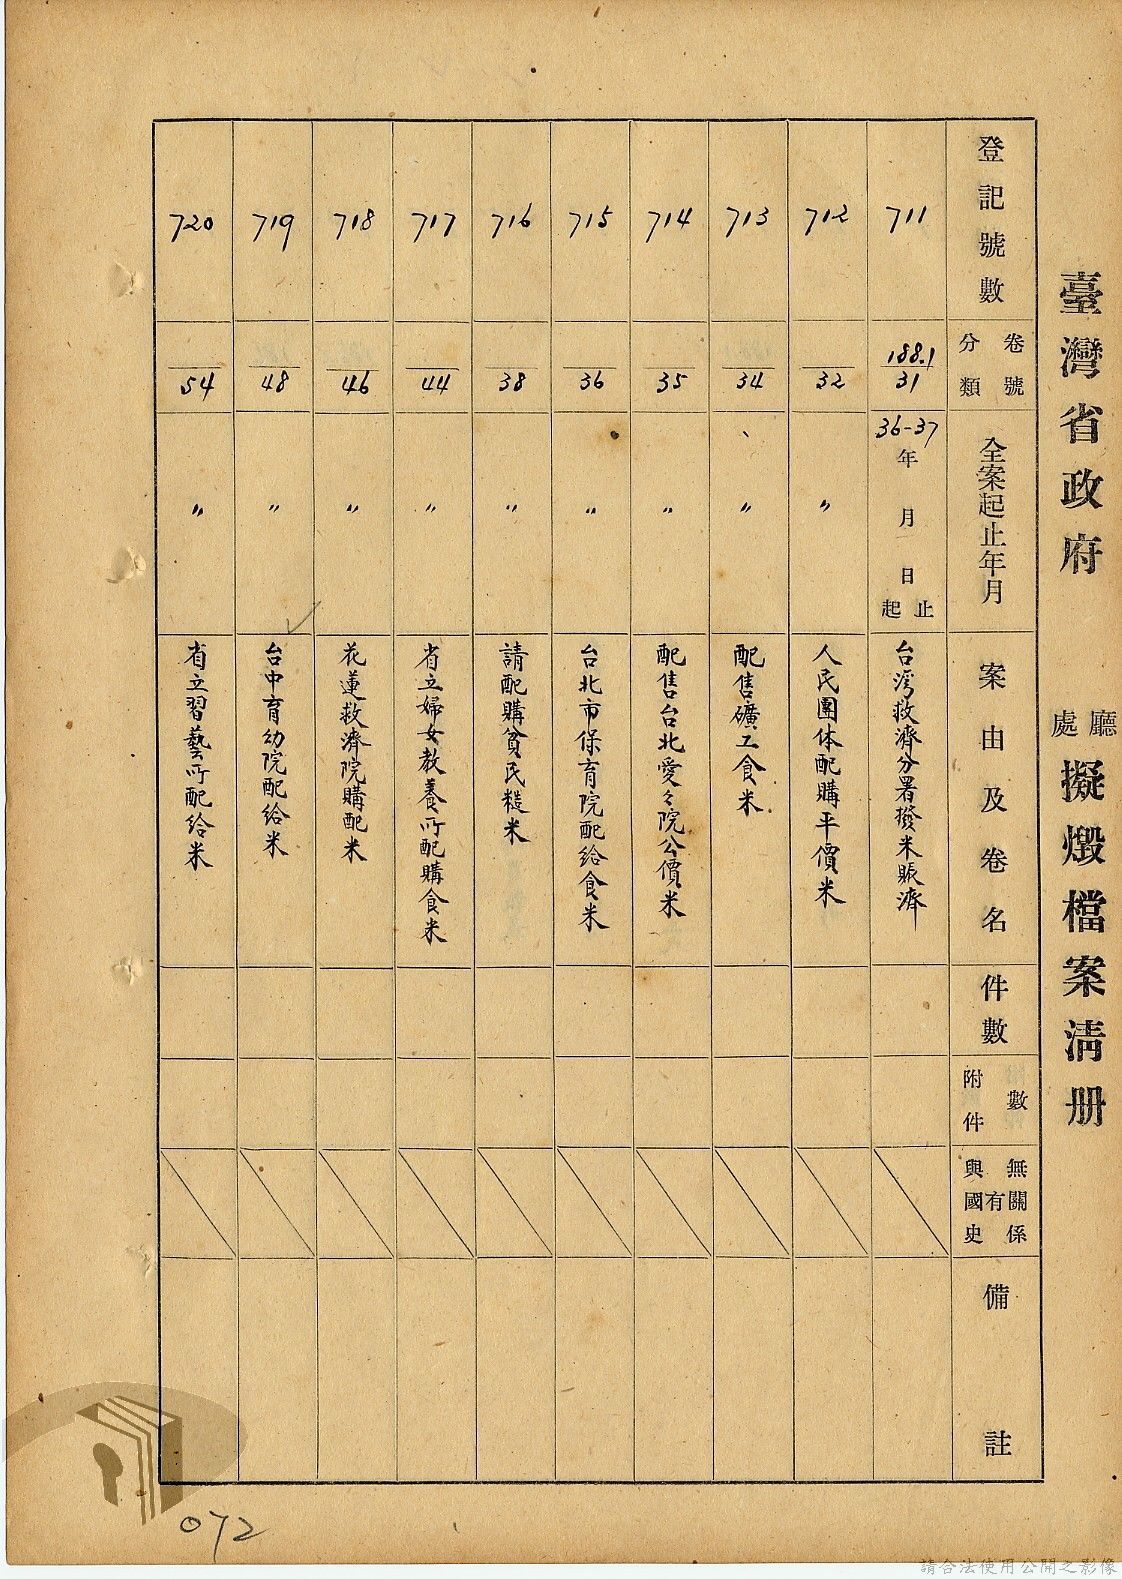 臺灣省政府廳處擬燬檔案清册
登記號數
分類
卷號
全案起止年月
案由及卷名
件數
附件
數
與國史
有
無關係
備註
711
188.1
31
36-37
年月日
起止
台湾救濟分署撥米賑濟
712
32
〃
人民團体配購平價米
713
34
〃
配售礦工食米
714
35
〃
配售台北愛々院公價米
715
36
〃
台北市保育院配給食米
716
38
〃
請配購貧民糙米
717
44
〃
省立婦女教養所配購食米
718
46
〃
花蓮救濟院購配米
719
48
〃
台中育幼院配給米
720
54
〃
省立習藝所配給米
072
請合法使用公開之影像